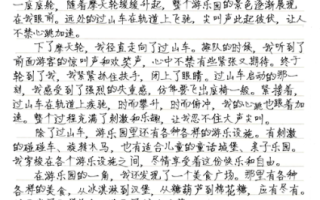 一座座轮，随着摩天轮缓缓升起，整个游乐园的景色逐渐展现
在我眼前。远处的过山车在轨道上飞驰，尖叫声此起彼伏，让人
不禁心跳加速。
下了摩天轮，我径直走向了过山车。排队的时候，我听到了
前面游客的惊叫声和欢笑声，心中不禁有些紧张又期待。终于
轮到了我，我紧紧抓住扶手，闭上了眼睛。过山车启动的那一
刻，我感受到了强烈的失重感，仿佛要飞出座椅一般。紧接着，
过山车在轨道上疾驰，时而攀升，时而俯冲，我的心跳也跟着加
速。整个过程充满了刺激和乐趣，让我忍不住大声尖叫。
除了过山车，游乐园里还有各种各样的游乐设施。有刺激
的碰碰车、旋转木马，也有适合儿童的童话城堡、亲子乐园。
我穿梭在各个游乐设施之间，尽情享受着这份快乐和自由。
在游乐园的一角，我还发现了一个美食广场。那里有各种
各样的美食，从冰淇淋到汉堡，从糖葫芦到棉花糖，应有尽有。